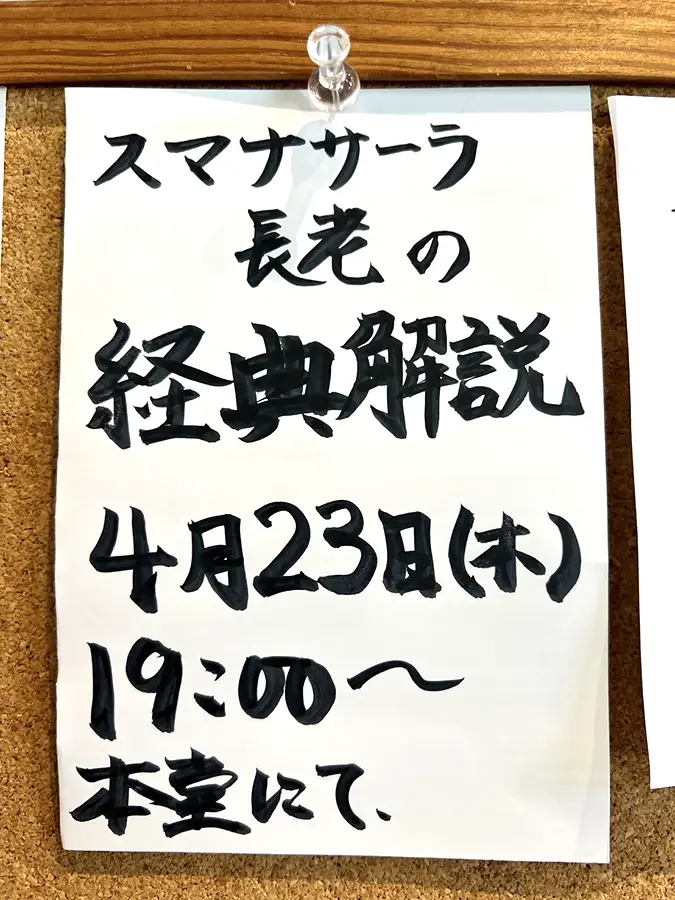 スマナサーラ
長老の
経典解説
4月23日(木)
19:00〜
本堂にて、